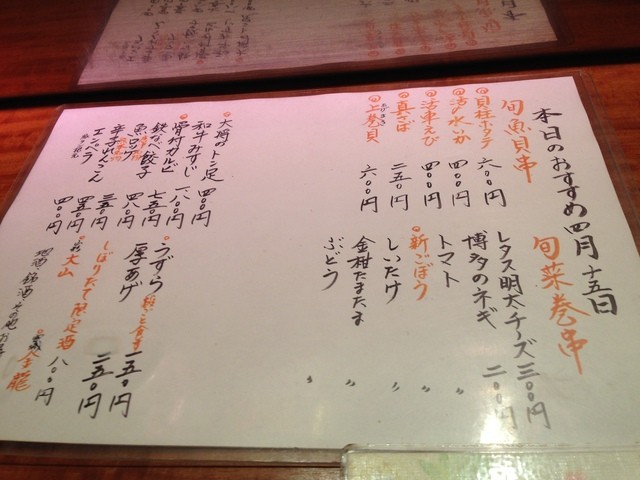 本日のおすすめ 四月十五日
旬魚貝串
貝柱ホタテ 六〇〇円
活水いか 四〇〇円
活車えび 四〇〇円
真さば 二五〇円
上巻貝 六〇〇円
旬菜巻串
レタス明太チーズ 三〇〇円
博多のネギ 二〇〇円
トマト 〃
新ごぼう 〃
しいたけ 〃
金柑たまたま 〃
ぶどう 〃
大将のトン足 四〇〇円
和牛みすじ
骨付カルビ 一八〇〇円
鉄なべ餃子 七五〇円
魚ロッケ 四八〇円
辛子れんこん 三五〇円
エンペラ 四五〇円
四〇〇円
うずら 一五〇円
厚あげ 二五〇円
しぼりたて限定酒
大山 八〇〇円
金龍
地酒 銘酒 その他